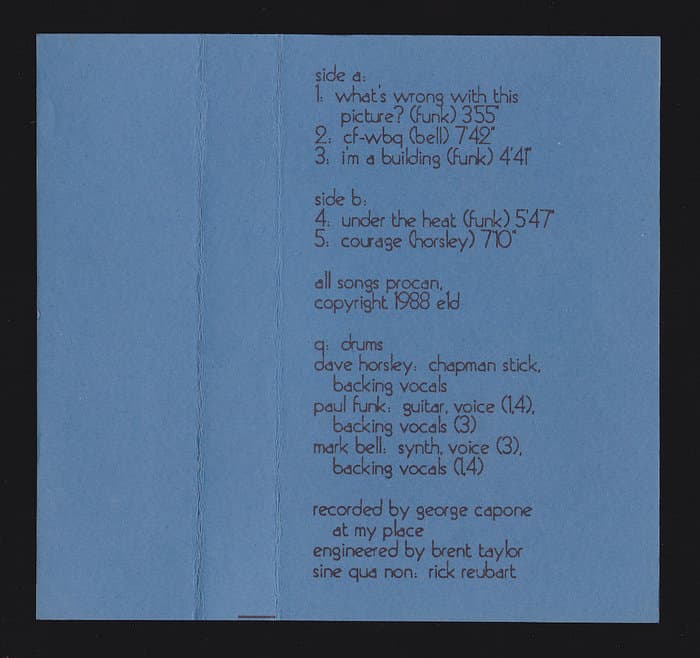 side a:
1: what's wrong with this
picture? (funk) 3'55"
2: cf-wbq (bell) 7'42"
3: i'm a building (funk) 4'41"
side b:
4: under the heat (funk) 5'47"
5: courage (horsley) 7'10"
all songs procan,
copyright 1988 e1d
q: drums
dave horsley: chapman stick,
backing vocals
paul funk: guitar, voice (1,4),
backing vocals (3)
mark bell: synth, voice (3),
backing vocals (1,4)
recorded by george capone
at my place
engineered by brent taylor
sine qua non: rick reubart